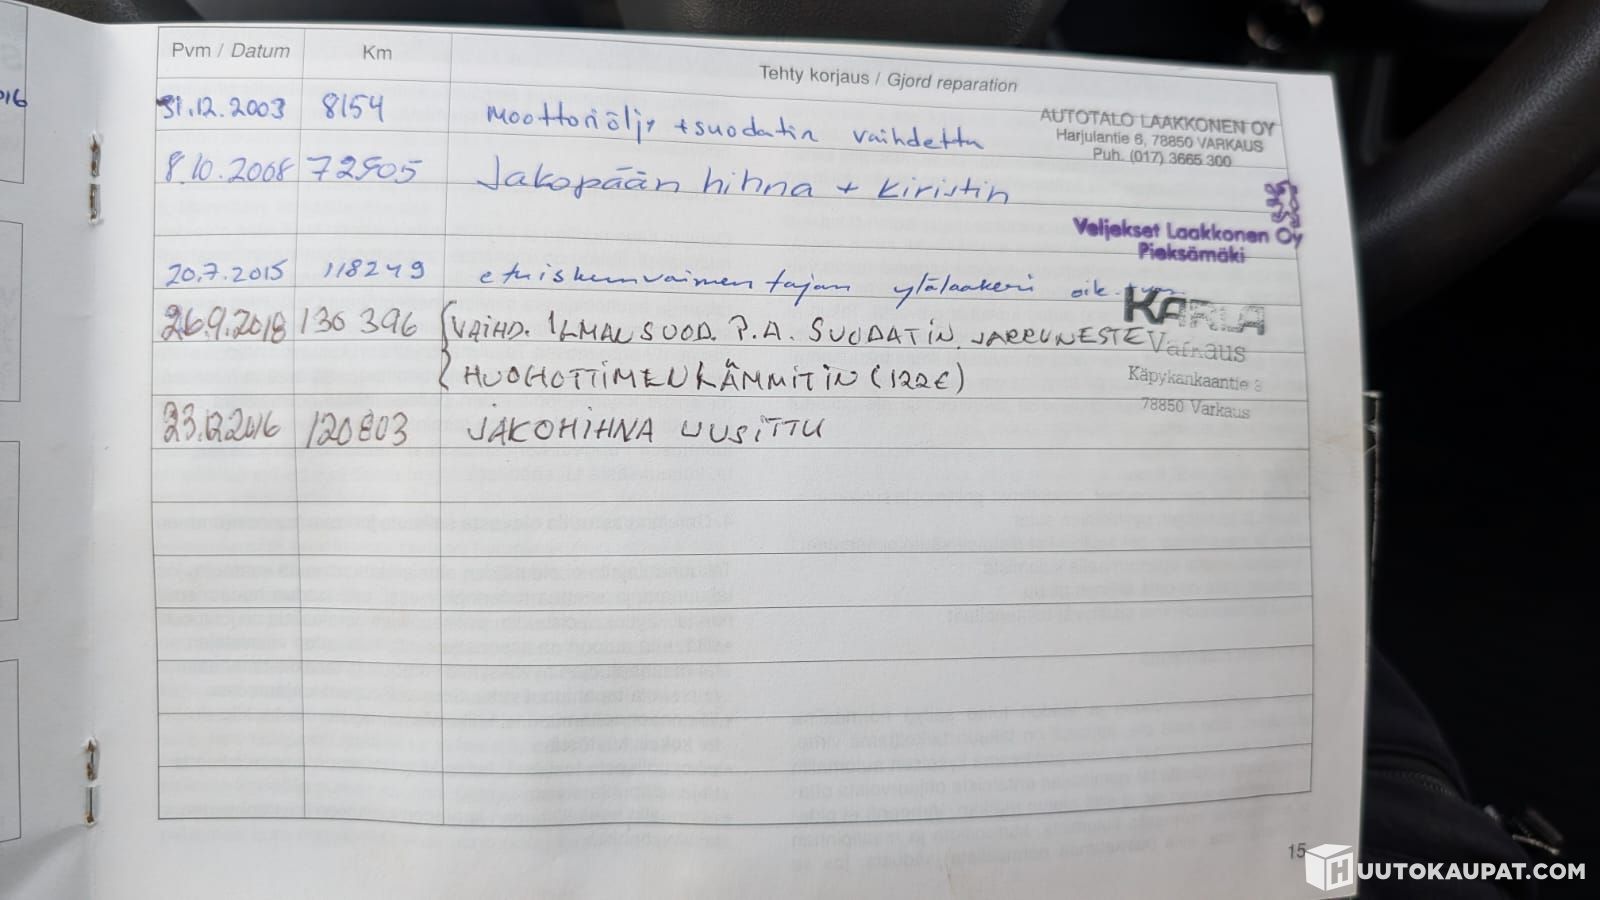 016
Pvm / Datum Km Tehty korjaus / Gjord reparation
31.12.2003 8154 moottoriöljy + suodatin vaihdettu
AUTOTALO LAAKKONEN OY
Harjulantie 6, 78850 VARKAUS
Puh. (017) 3665 300
8.10.2008 72905 Jakopään hihna + kiristin
Veljekset Laakkonen Oy
Pieksämäki
20.7.2015 118249 etuiskunvaimentajan ylälaakeri oik.
KARLA
Varkaus
Käpykankaantie 3
78850 Varkaus
26.9.2018 130 396 VAIHD. ILMANSUOD. P.A. SUODATIN. JARRUNESTE
HUOHOTTIMEN KÄMMITIN (122€)
23.12.2016 120803 JAKOHIHNA UUSITTU
15
HUUTOKAUPAT.COM